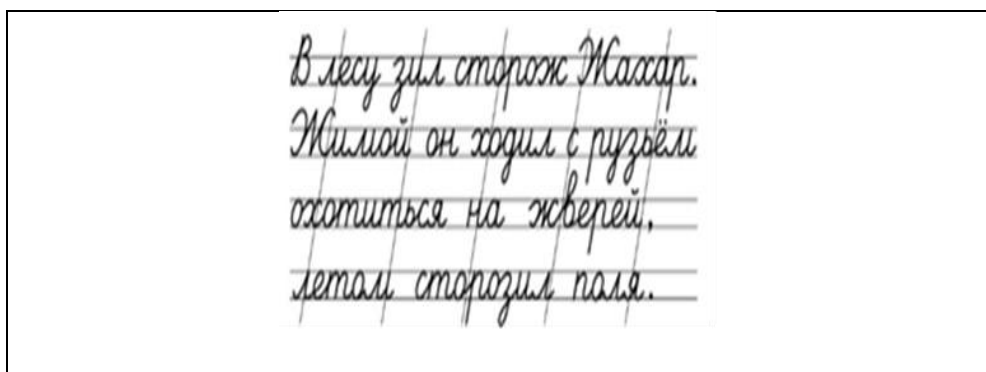 В лесу зил сторож Жахар.
Жимой он ходил с рузьём
охотиться на жверей,
летом сторозил поля.